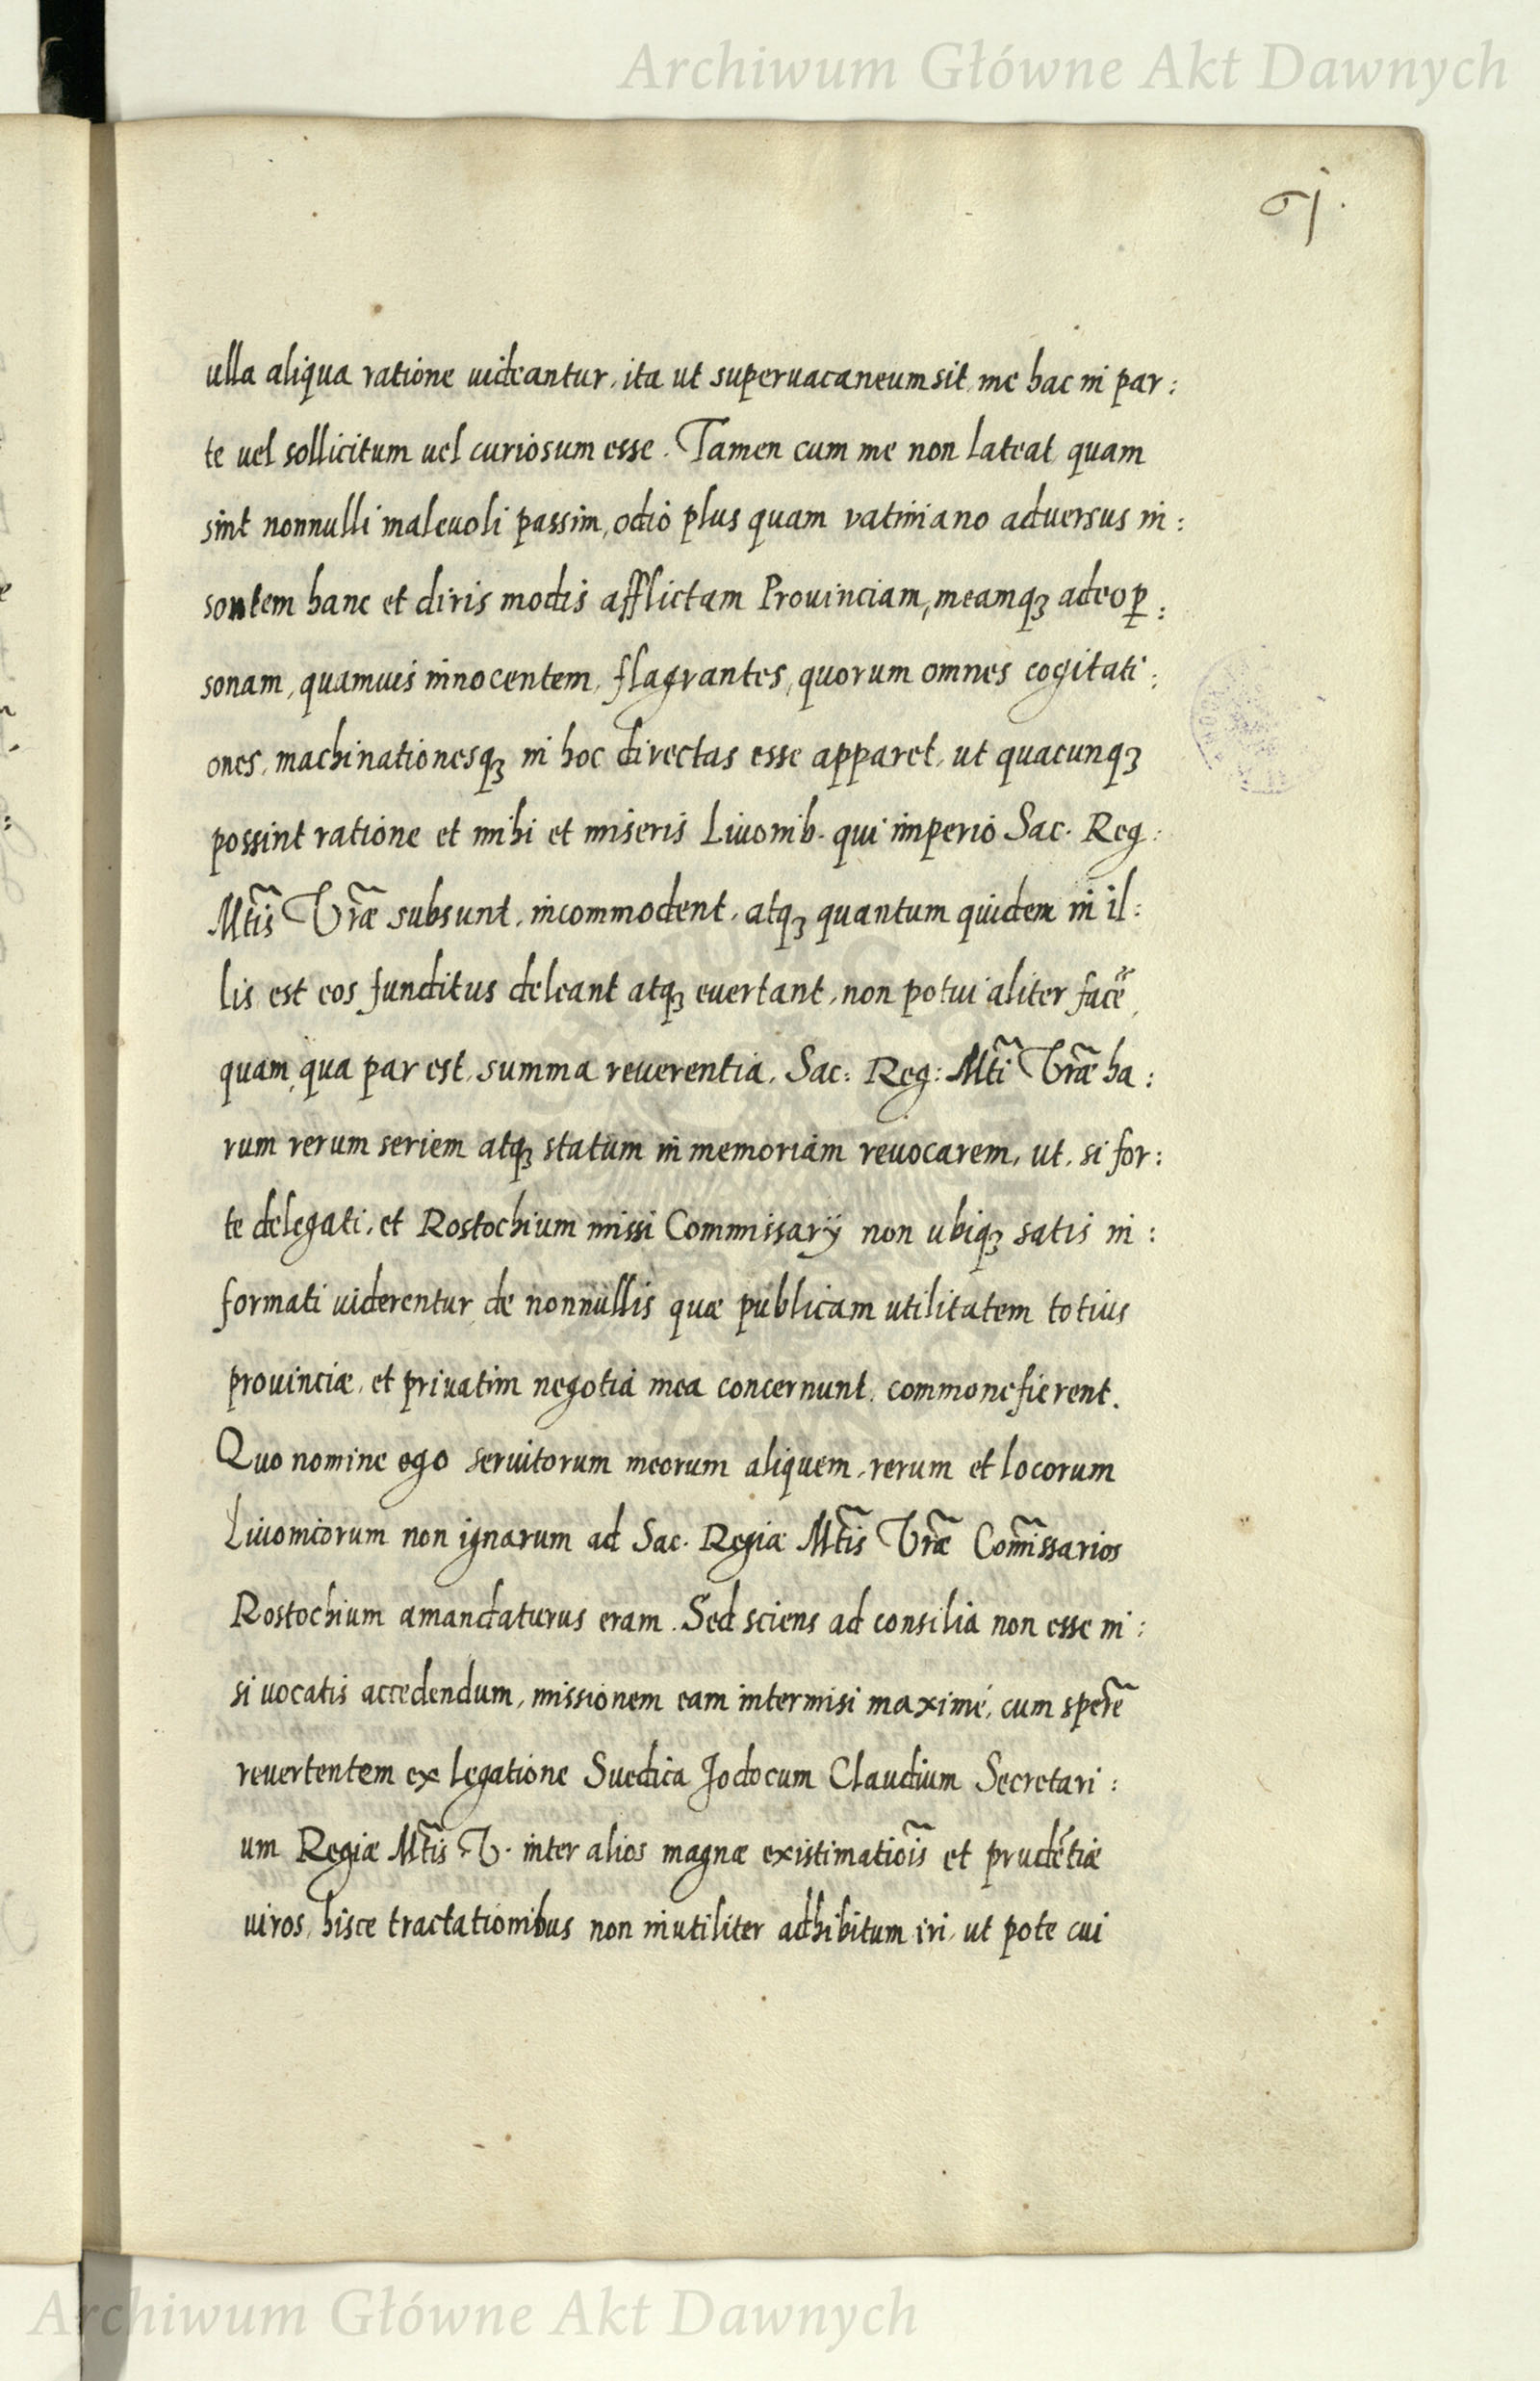 Archiwum Główne Akt Dawnych
61.
ulla aliqua ratione uideantur, ita ut superuacaneum sit, me hac in par:
te uel sollicitum uel curiosum esse. Tamen cum me non lateat quam
sint nonnulli maleuoli passim, odio plus quam vatiniano adversus in:
sontem hanc et diris modis afflictam Prouinciam, meamqꝫ adeo ꝑ:
sonam, quamuis innocentem, flagrantes, quorum omnes cogitati:
ones, machinationesqꝫ in hoc directas esse apparet, ut quacunqꝫ
possint ratione et mihi et miseris Liuonib. qui imperio Sac. Reg:
Mt̃is Vr̃æ subsunt, incommodent, atqꝫ quantum quidem in il:
lis est eos funditus deleant atqꝫ euertant, non potui aliter facẽ,
quam, qua par est, summa reuerentia, Sac: Reg: Mt̃i Vr̃æ ha:
rum rerum seriem atqꝫ statum in memoriam reuocarem, ut, si for:
te delegati, et Rostochium missi Commissarij non ubiqꝫ satis in:
formati uiderentur de nonnullis quæ publicam utilitatem totius
prouinciæ, et priuatim negotia mea concernunt, commonefierent.
Quo nomine ego seruitorum meorum aliquem, rerum et locorum
Liuonicorum non ignarum ad Sac. Regiæ Mt̃is Vr̃æ Com̃issarios
Rostochium amandaturus eram. Sed sciens ad consilia non esse ni:
si uocatis accedendum, missionem eam intermisi maximé, cum sperẽ
reuertentem ex legatione Suedica Jodocum Claudium Secretari:
um Regiæ Mt̃is V. inter alios magnæ existimatiõis et prudẽtiæ
uiros, hisce tractationibus non inutiliter adhibitum iri, ut pote cui
Archiwum Główne Akt Dawnych